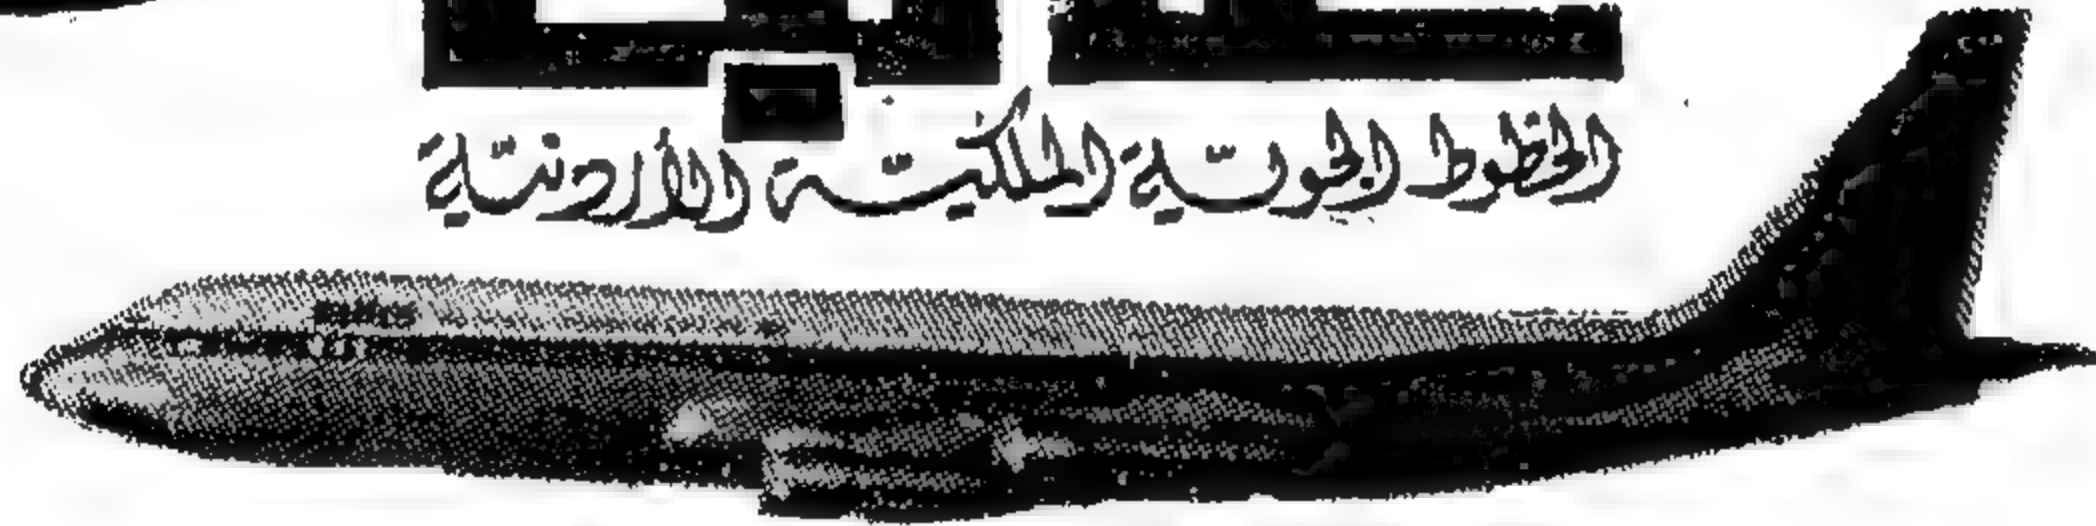 الخطوط الجوية الملكية الأردنية